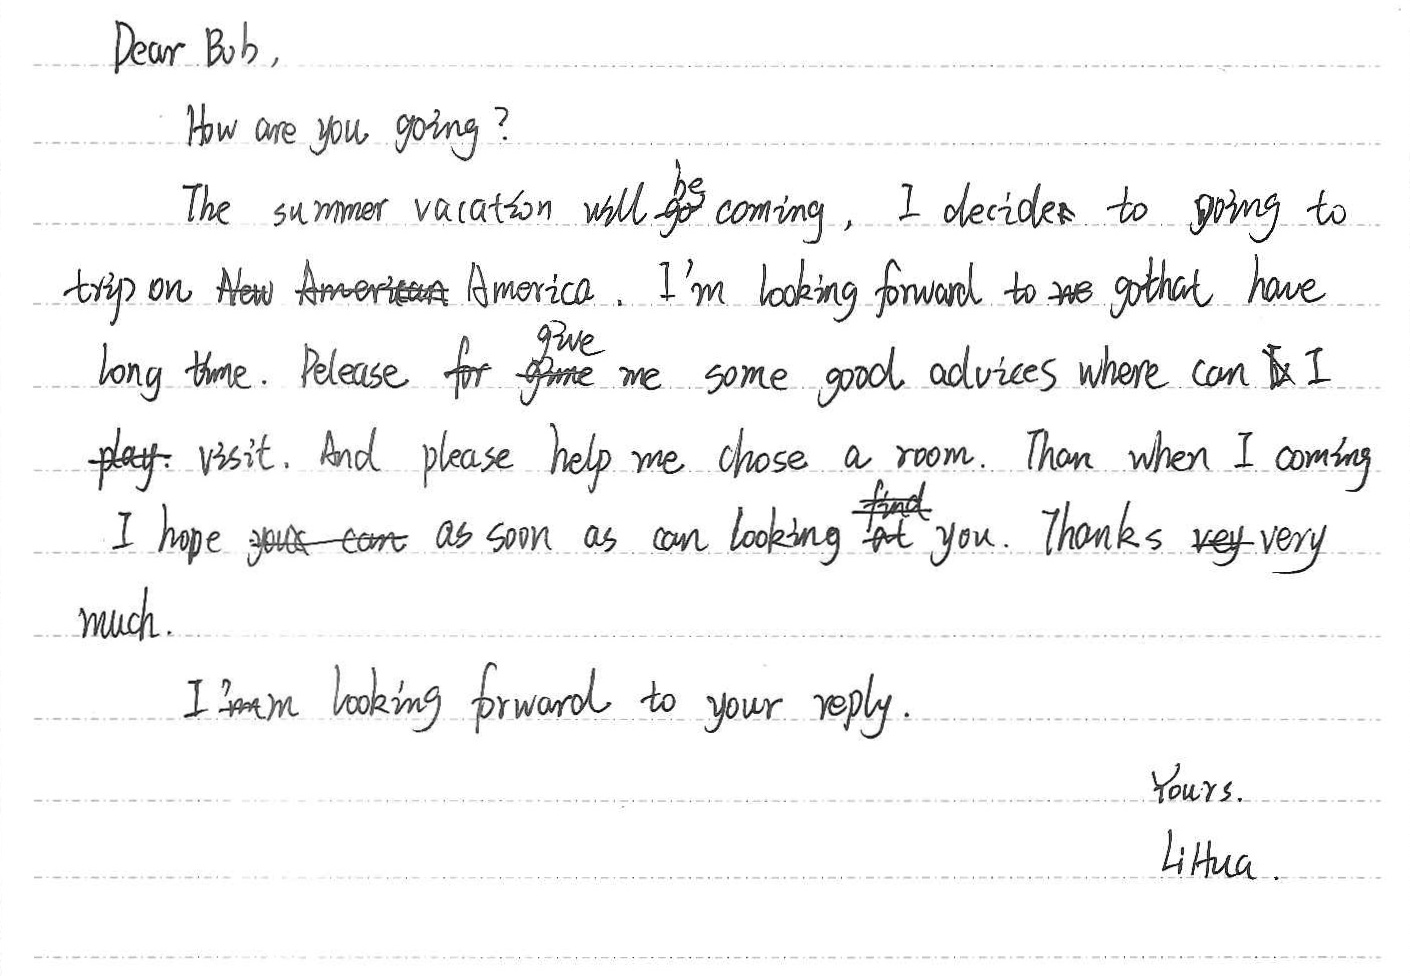 Dear Bob,
How are you going?
The summer vacation will be coming, I decide to going to
trip on America. I'm looking forward to go that have
long time. Pelease give me some good advices where can I
visit. And please help me chose a room. Than when I coming
I hope as soon as can looking you. Thanks very
much.
I'm looking forward to your reply.
Yours.
Li Hua.